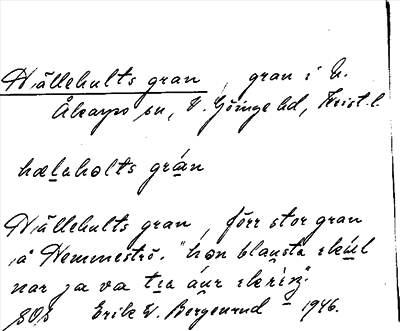 Hällehults gran, gran i N.
Åkarps sn, V. Göinge hd, Krist. l.
hæleholts grán
Hällehults gran, förr stor gran
på Hemmeströ. "hon blåusta skúl
nar ja va tra áur skriŋ".
SOB Erik W. Bergenrud 1946.